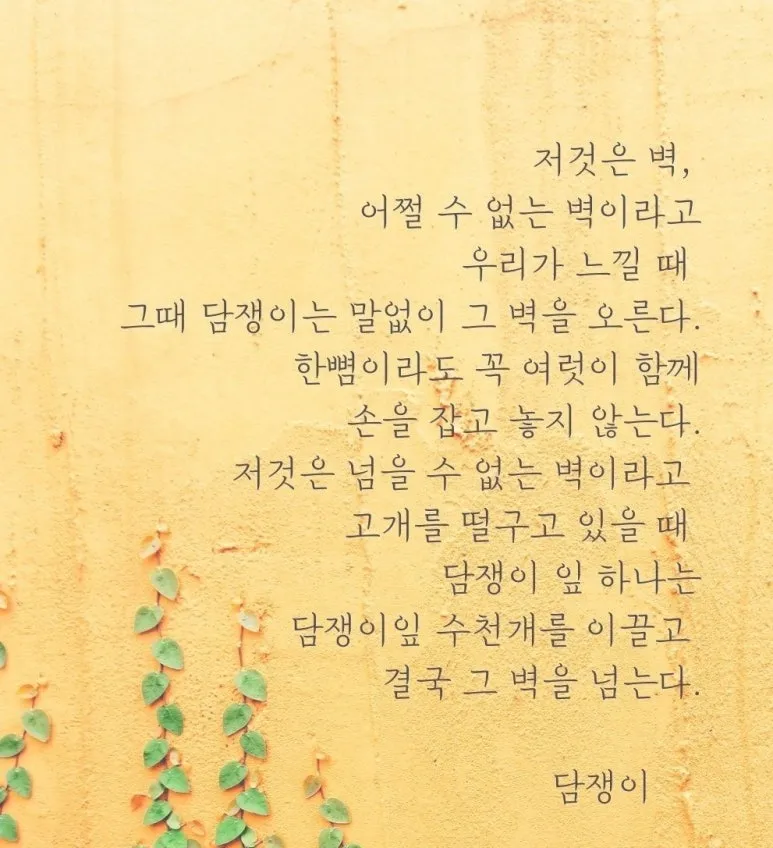 저것은 벽,
어쩔 수 없는 벽이라고
우리가 느낄 때
그때 담쟁이는 말없이 그 벽을 오른다.
한뼘이라도 꼭 여럿이 함께
손을 잡고 놓지 않는다.
저것은 넘을 수 없는 벽이라고
고개를 떨구고 있을 때
담쟁이 잎 하나는
담쟁이잎 수천개를 이끌고
결국 그 벽을 넘는다.
담쟁이